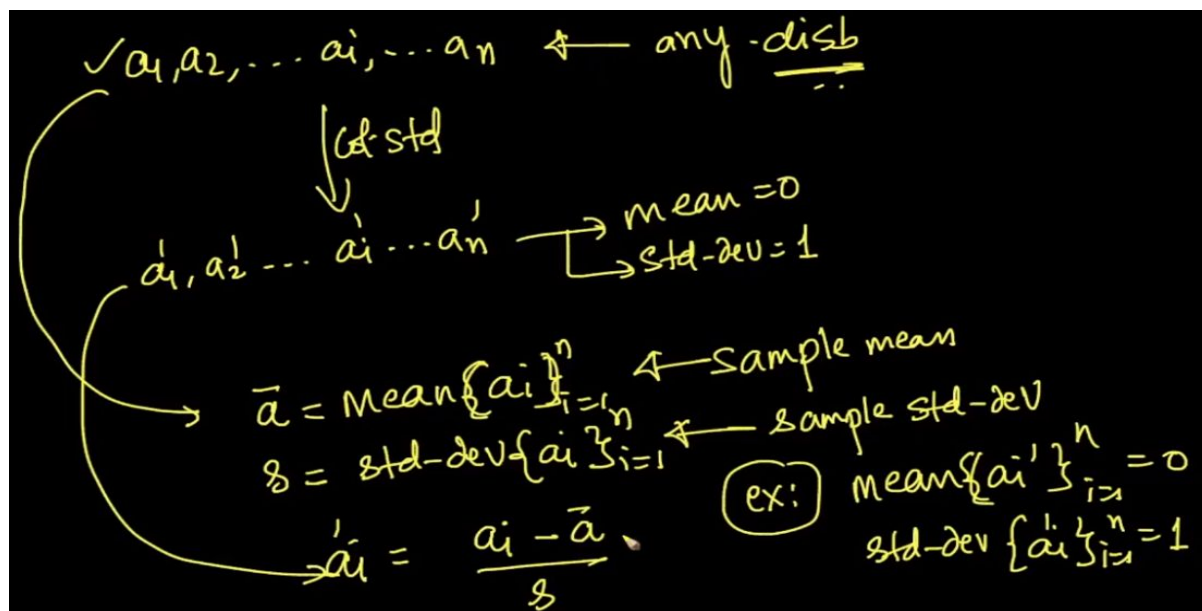 ✓ a₁, a₂, ... aᵢ, ... aₙ ← any - disb
col-std
a₁', a₂' ... aᵢ' ... aₙ' → mean = 0
→ std-dev = 1
ā = mean{aᵢ}ⁿᵢ₌₁ ← sample mean
s = std-dev{aᵢ}ⁿᵢ₌₁ ← sample std-dev
ex: mean{aᵢ'}ⁿᵢ₌₁ = 0
std-dev {aᵢ'}ⁿᵢ₌₁ = 1
aᵢ' = (aᵢ - ā) / s